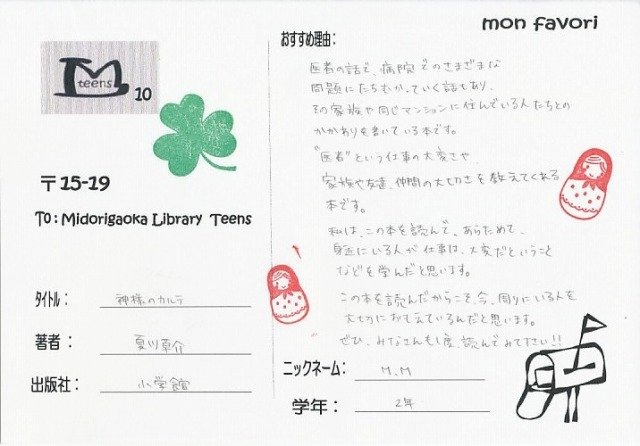 mon favori
teens
10
〒15-19
To: Midorigaoka Library Teens
タイトル: 神様のカルテ
著者: 夏川草介
出版社: 小学館
おすすめ理由:
医者の話で、病院でのさまざまな
問題にたちむかっていく話もあり、
その家族や同じマンションに住んでいる人たちとの
かかわりを書いている本です。
"医者"という仕事の大変さや、
家族や友達、仲間の大切さを教えてくれる
本です。
私は、この本を読んで、あらためて、
身近にいる人が仕事は、大変だということ
などを学んだと思います。
この本を読んだからこそ、今、周りにいる人を
大切におもえているんだと思います。
ぜひ、みなさんも1度、読んでみて下さい!!
ニックネーム: M.M
学年: 2年